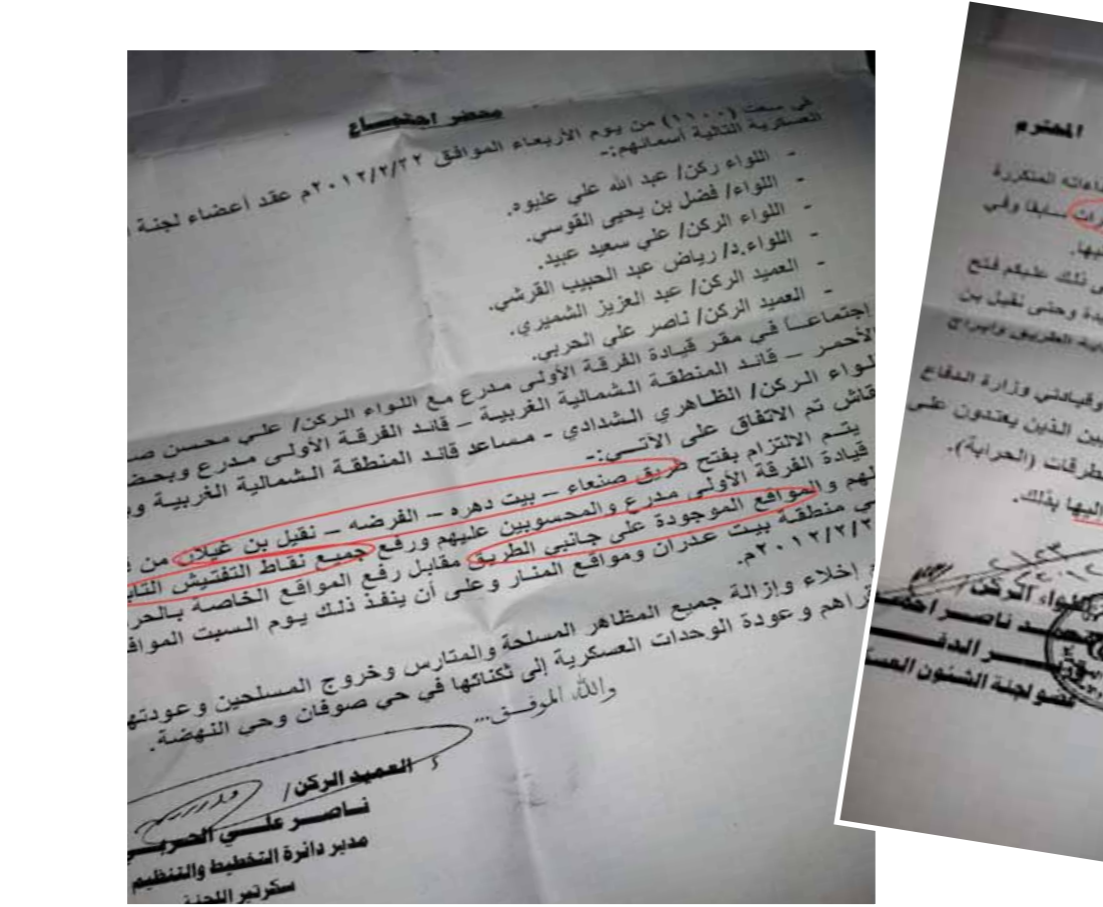 محضر اجتماع
في سعت (١١٠٠) من يوم الأربعاء الموافق ٢٠١٢/٢/٢٢م عقد أعضاء لجنة
العسكرية التالية أسمائهم:-
- اللواء ركن/ عبد الله علي عليوه.
- اللواء/ فضل بن يحيى القوسي.
- اللواء الركن/ علي سعيد عبيد.
- اللواء.د/ رياض عبد الحبيب القرشي.
- العميد الركن/ عبد العزيز الشميري.
- العميد الركن/ ناصر علي الحربي.
إجتماعاً في مقر قيادة الفرقة الأولى مدرع مع اللواء الركن/ علي محسن
الأحمر – قائد المنطقة الشمالية الغربية – قائد الفرقة الأولى مدرع
اللواء الركن/ الظاهري الشدادي - مساعد قائد المنطقة الشمالية الغربية
تم الاتفاق على الآتي:-
يتم الالتزام بفتح طريق صنعاء – بيت دهره – الفرضه – نقيل بن غيلان من
قيادة الفرقة الأولى مدرع والمحسوبين عليهم ورفع جميع نقاط التفتيش
والمواقع الموجودة على جانبي الطريق مقابل رفع المواقع الخاصة
منطقة بيت عذران ومواقع المنار وعلى أن ينفذ ذلك يوم السبت
إخلاء وإزالة جميع المظاهر المسلحة والمتارس وخروج المسلحين
وعودة الوحدات العسكرية إلى ثكناتها في حي صوفان وحي النهضة.
والله الموفق...
العميد الركن/
ناصر علي الحربي
مدير دائرة التخطيط والتنظيم
سكرتير اللجنة
المحترم
المتكررة
سابقا وفي
ذلك عليكم فتح
وحتى نقيل بن
الطريق
وزارة الدفاع
الذين يعتدون على
(الحرابة).
إليها بذلك.
اللواء الركن/
ناصر